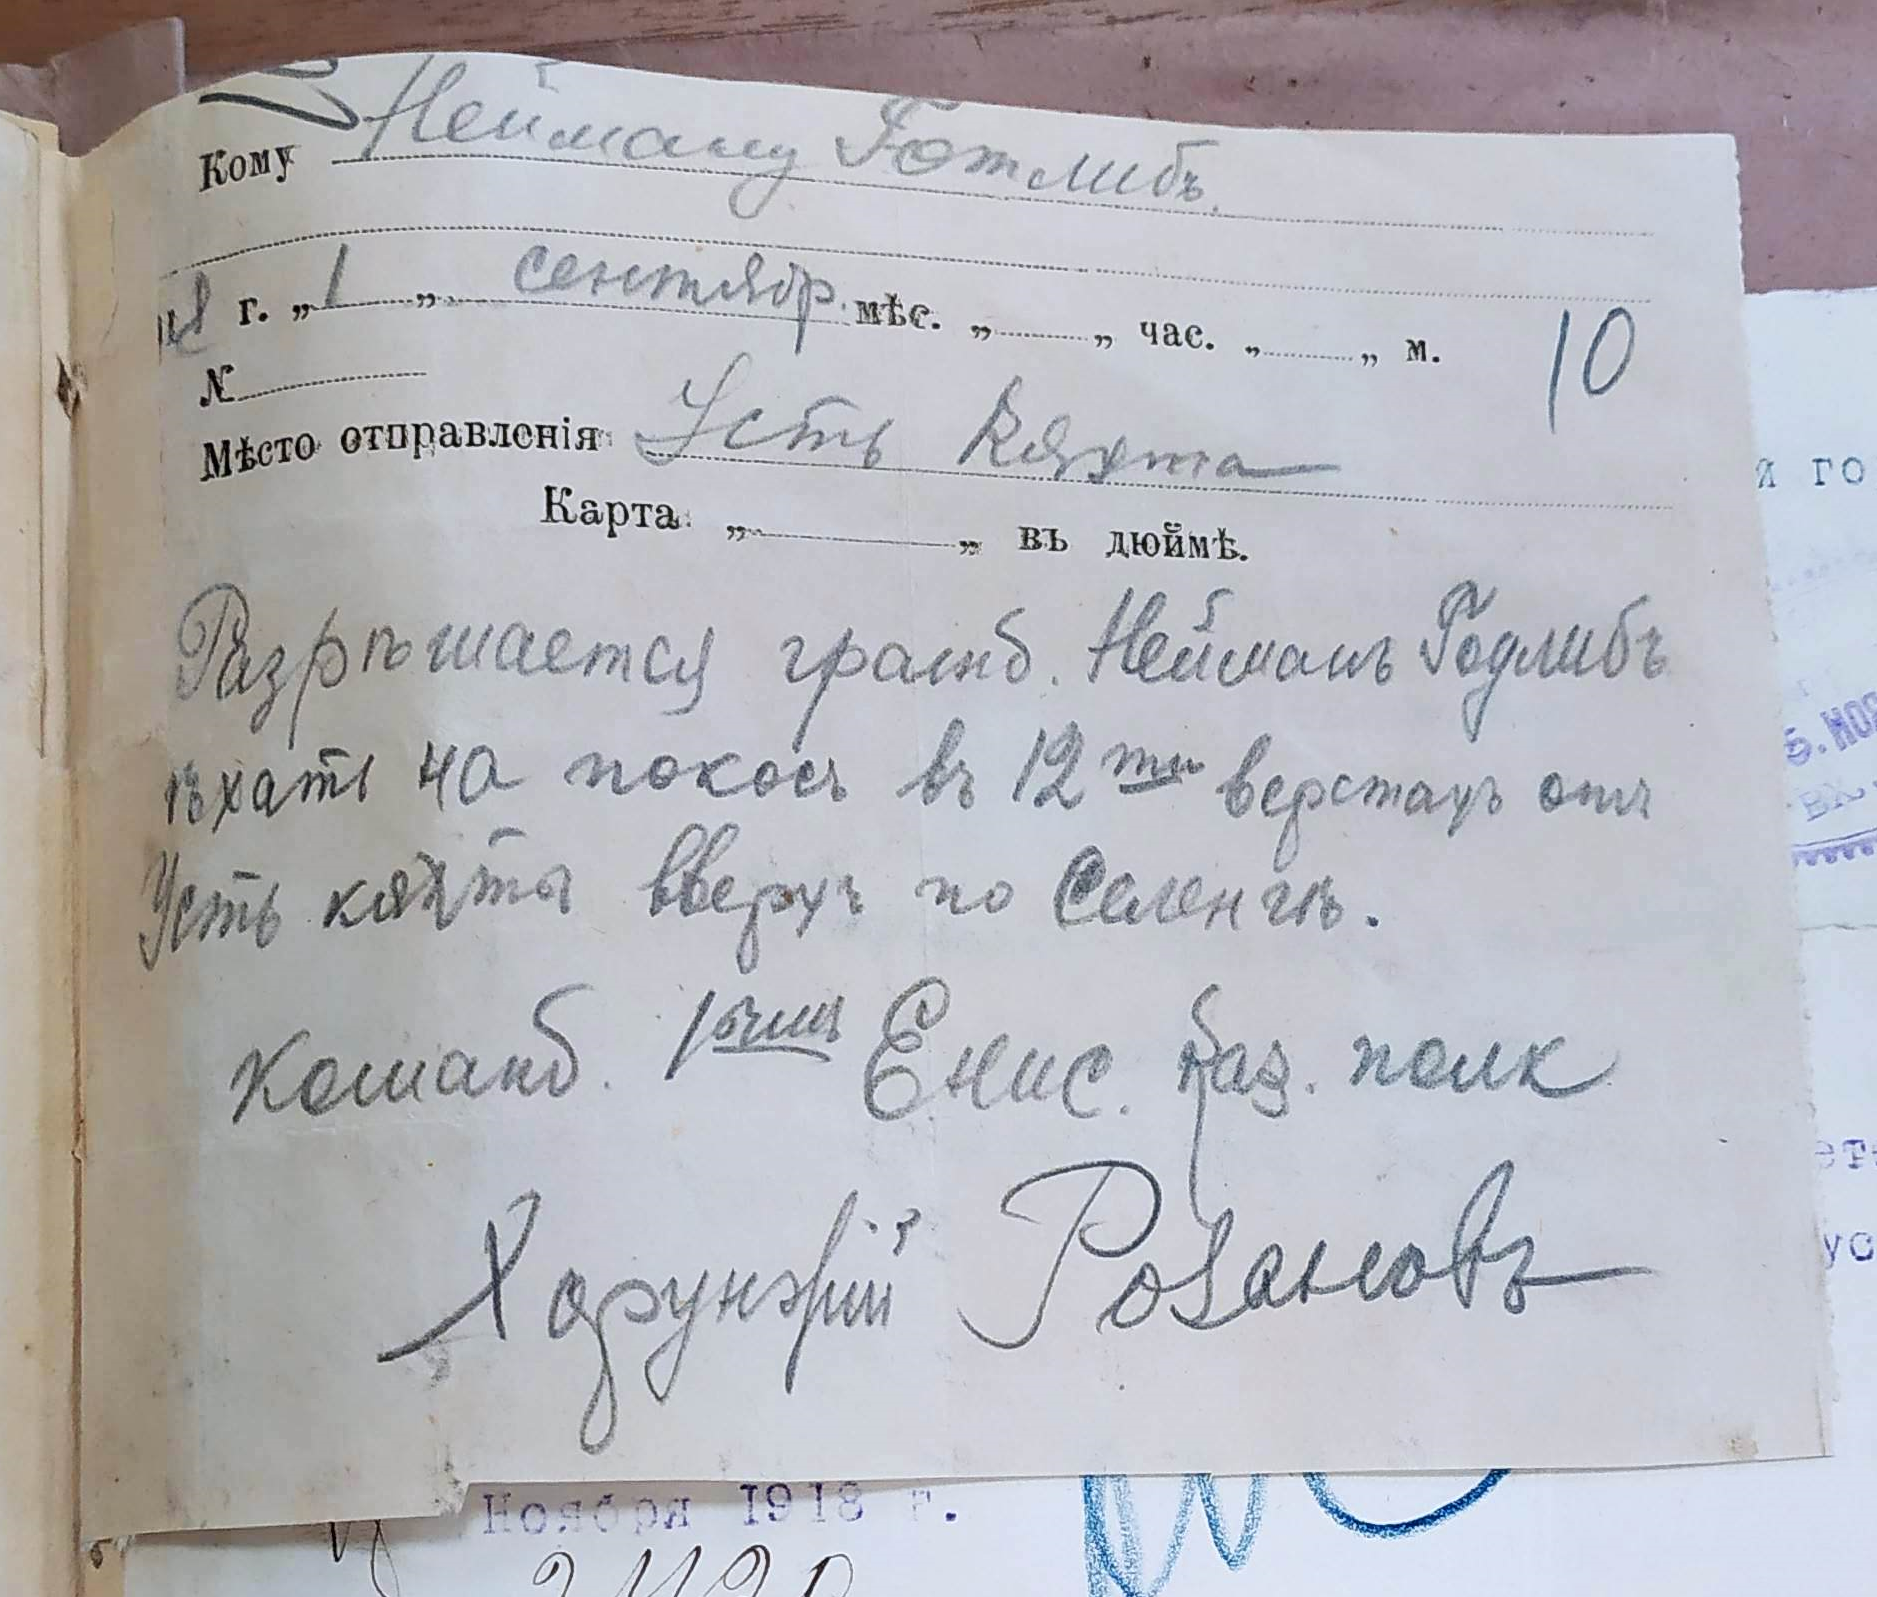 Кому Нейману Готлибъ.
18 г. „ 1 „ сентябр. мѣс. „ „ час. „ „ м.
10
N
Мѣсто отправленія Усть Кяхта
Карта „ „ въ дюймѣ.
Разрѣшается гражд. Нейманъ Годлибъ
ѣхать на покосъ въ 12ти верстахъ отъ
Усть кяхты вверхъ по Селенгѣ.
Команд. 1 Енис. Каз. полк
Хорунжій Розановъ
Ноября 1918 г.
2420
я го
5. НОЯ
вх.
ет
ус